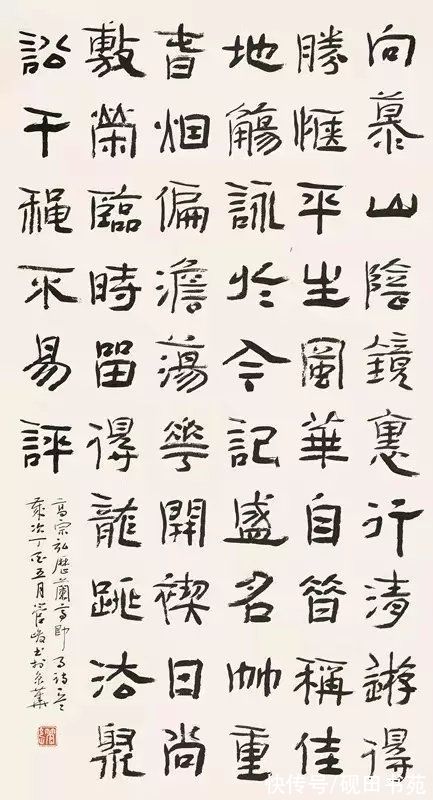 向慕山陰鏡裏行清遊得
勝愜平生風華自昔稱佳
地觴詠於今記盛名竹重
春烟偏澹蕩花開禊日尚
敷榮臨時留得龍跳法聚
訟千穐不易評
高宗弘歷蘭亭即事詩
歲次丁酉五月管峻書於京華
快传号/砚田书苑